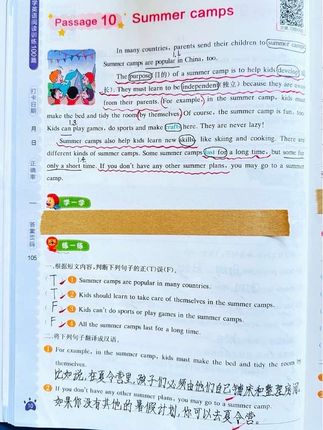 学英语阅读训练100篇
Passage 10 Summer camps
In many countries, parents send their children to summer camps.
1.1
Summer camps are popular in China, too.
The purpose (目的) of a summer camp is to help kids develop
长). They must learn to be independent (独立) because they are away
from their parents. For example, in the summer camp, kids must
make the bed and tidy the room by themselves. Of course, the summer camp is fun, too.
1.3
Kids can play games, do sports and make crafts here. They are never lazy!
Summer camps also help kids learn new skills, like skiing and cooking. There are
different kinds of summer camps. Some summer camps last for a long time, but some for
1.4
only a short time. If you don't have any other summer plans, you may go to a summer
camp.
打卡日期
月
日
正确率
答案页码
105
学一学
练一练
一、根据短文内容,判断下列句子的正(T)误(F)。
T 1 Summer camps are popular in many countries.
T 2 Kids should learn to take care of themselves in the summer camps.
F 3 Kids can't do sports or play games in the summer camps.
F 4 All the summer camps last for a long time.
二、将下列句子翻译成汉语。
1 For example, in the summer camp, kids must make the bed and tidy the room by
themselves.
比如说,在夏令营里,孩子们必须由他们自己铺床和整理房间。
2 If you don't have any other summer plans, you may go to a summer camp.
如果你没有其他的暑假计划,你可以去夏令营。